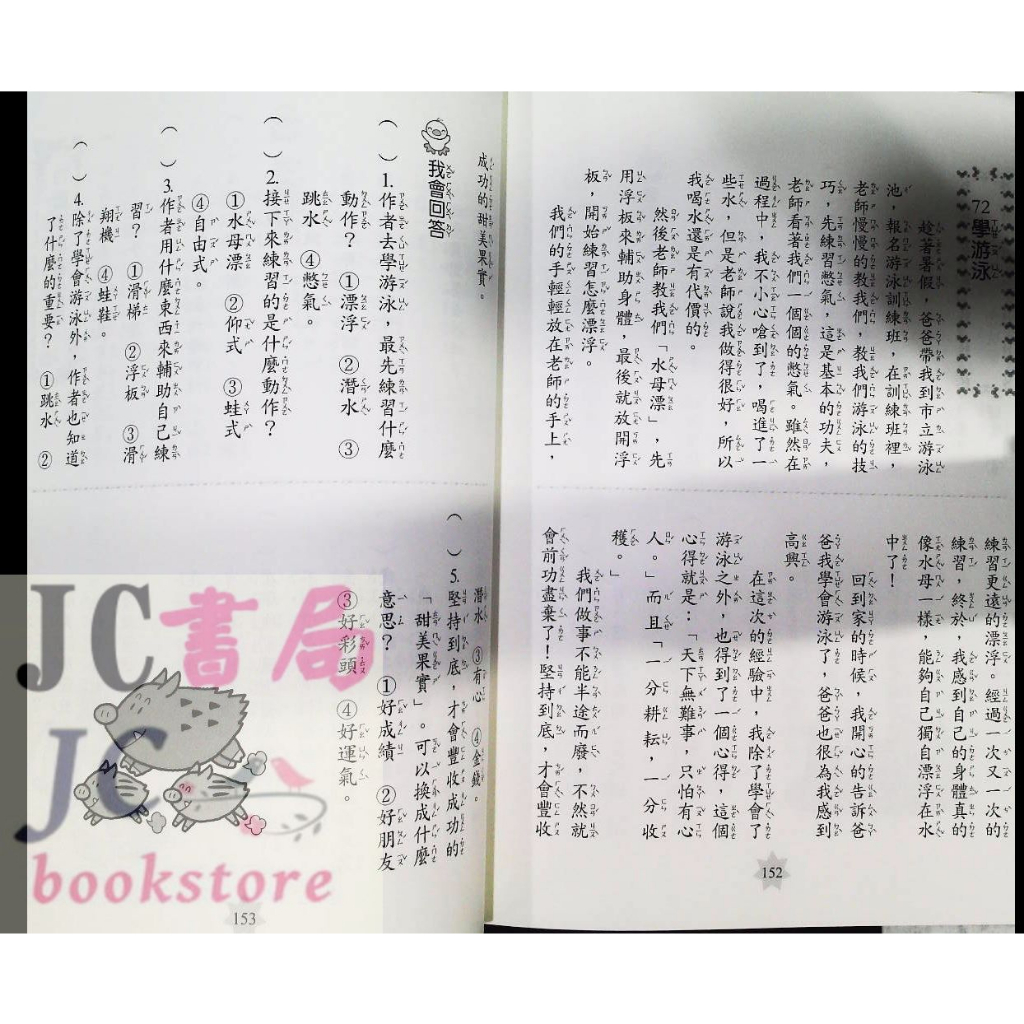 72學游泳
趁著暑假，爸爸帶我到市立游泳
池，報名游泳訓練班，在訓練班裡，
老師慢慢的教我們，教我們游泳的技
巧，先練習憋氣，這是基本的功夫，
老師看著我們一個個的憋氣。雖然在
過程中，我不小心嗆到了，喝進了一
些水，但是老師說我做得很好，所以
我喝水還是有代價的。
然後老師教我們「水母漂」，先
用浮板來輔助身體，最後就放開浮
板，開始練習怎麼漂浮。
我們的手輕輕放在老師的手上，
練習更遠的漂浮。經過一次又一次的
練習，終於，我感到自己的身體真的
像水母一樣，能夠自己獨自漂浮在水
中了！
回到家的時候，我開心的告訴爸
爸我學會游泳了，爸爸也很為我感到
高興。
在這次的經驗中，我除了學會了
游泳之外，也得到了一個心得，這個
心得就是：「天下無難事，只怕有心
人。」而且「一分耕耘，一分收
穫。」
我們做事不能半途而廢，不然就
會前功盡棄了！堅持到底，才會豐收
152
成功的甜美果實。
我會回答
（　）1.作者去學游泳，最先練習什麼
動作？　①漂浮　②潛水　③
跳水　④憋氣。
（　）2.接下來練習的是什麼動作？
①水母漂　②仰式　③蛙式
④自由式。
（　）3.作者用什麼東西來輔助自己練
習？　①滑梯　②浮板　③滑
翔機　④蛙鞋。
（　）4.除了學會游泳外，作者也知道
了什麼的重要？　①跳水　②
潛水　③有心　④金錢。
（　）5.堅持到底，才會豐收成功的
「甜美果實」。可以換成什麼
意思？　①好成績　②好朋友
③好彩頭　④好運氣。
153
JC書局
JC
bookstore